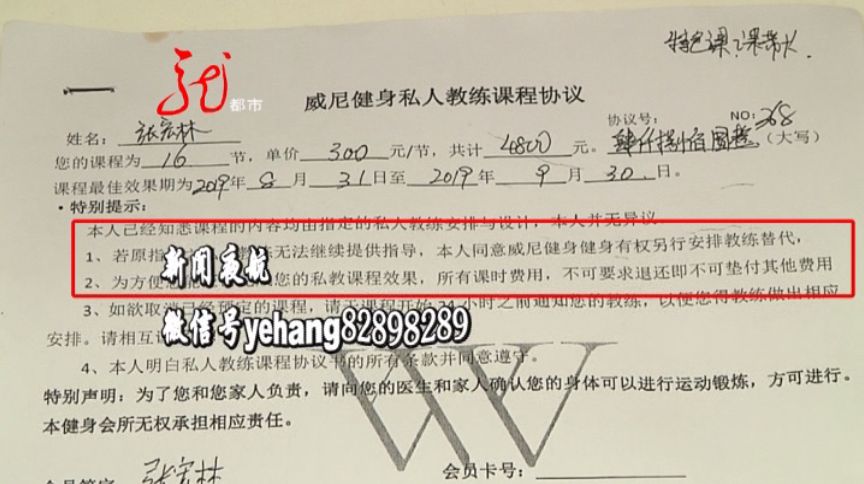 特色课:课带火.
龙
都市
威尼健身私人教练课程协议
姓名: 张宏林 协议号: NO: 368
您的课程为 16 节,单价 300 元/节,共计 4800 元。肆仟捌佰圆整(大写)
课程最佳效果期为2019年 8 月 31 日至 2019 年 9 月 30 日。
·特别提示:
本人已经知悉课程的内容均由指定的私人教练安排与设计,本人并无异议。
1、若原指 无法继续提供指导,本人同意威尼健身健身有权另行安排教练替代,
2、为方便 您的私教课程效果,所有课时费用,不可要求退还即不可垫付其他费用
3、如欲取消已经预定的课程,请于课程开始 24 小时之前通知您的教练,以便您得教练做出相应
安排。请相互
4、本人明白私人教练课程协议书的所有条款并同意遵守。
特别声明:为了您和您家人负责,请向您的医生和家人确认您的身体可以进行运动锻炼,方可进行。
本健身会所无权承担相应责任。
会员签字 张宏林 会员卡号:
新闻夜航
微信号yehang82898289
W